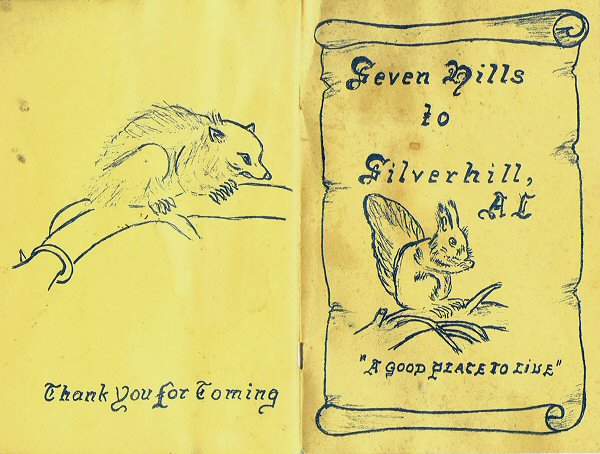 Seven Hills
to
Silverhill,
AL
"A GOOD PLACE TO LIVE"
Thank You for Coming